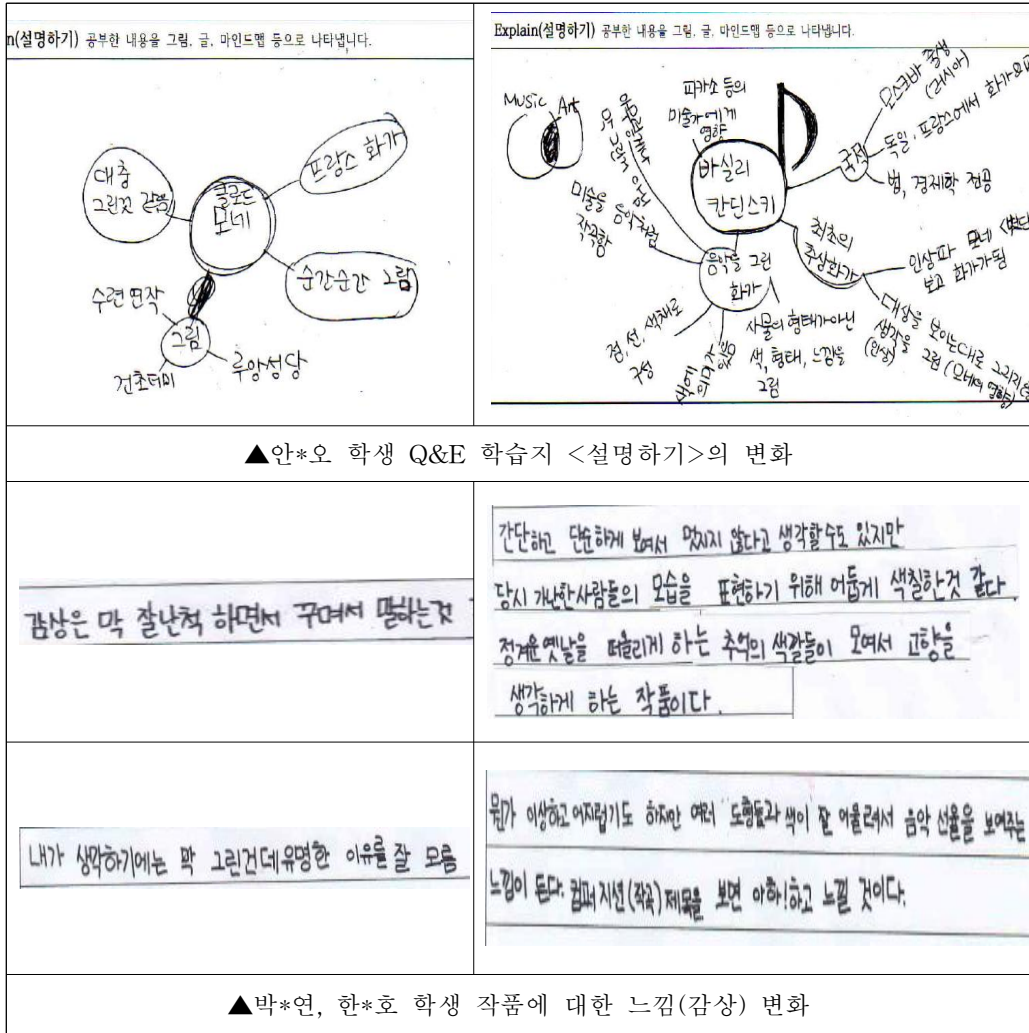 n(설명하기) 공부한 내용을 그림, 글, 마인드맵 등으로 나타냅니다.
대충
그린것 같음
클로드
모네
프랑스 화가
순간순간 그림
그림
수련 연작
건초더미
루앙성당
Explain(설명하기) 공부한 내용을 그림, 글, 마인드맵 등으로 나타냅니다.
Music
Art
피카소 등의
미술가에게
영향
바실리
칸딘스키
국적
모스크바 출생
(러시아)
독일, 프랑스에서
법, 경제학 전공
최초의
추상화가
인상파 모네
보고 화가가됨
대상을 보이는대로 그리지
생각을 그림 (모네의 영향)
(인상)
음악을 그린
화가
미술을 음악처럼
작곡함
점, 선, 색채로
구성
색에
의미가
있음
사물의 형태가아닌
색, 형태, 느낌을
그림
▲안*오 학생 Q&E 학습지 <설명하기>의 변화
감상은 막 잘난척 하면서 꾸며서 말하는것
간단하고 단순하게 보여서 멋지지 않다고 생각할수도 있지만
당시 가난한사람들의 모습을 표현하기 위해 어둡게 색칠한것 같다.
정겨운 옛날을 떠올리게 하는 추억의 색깔들이 모여서 고향을
생각하게 하는 작품이다.
내가 생각하기에는 막 그린건데 유명한 이유를 잘 모름
뭔가 이상하고 어지럽기도 하지만 여러 도형들과 색이 잘 어울려서 음악 선율을 보여주는
느낌이 든다. 컴퍼지션(작곡) 제목을 보면 아하!하고 느낄 것이다.
▲박*연, 한*호 학생 작품에 대한 느낌(감상) 변화